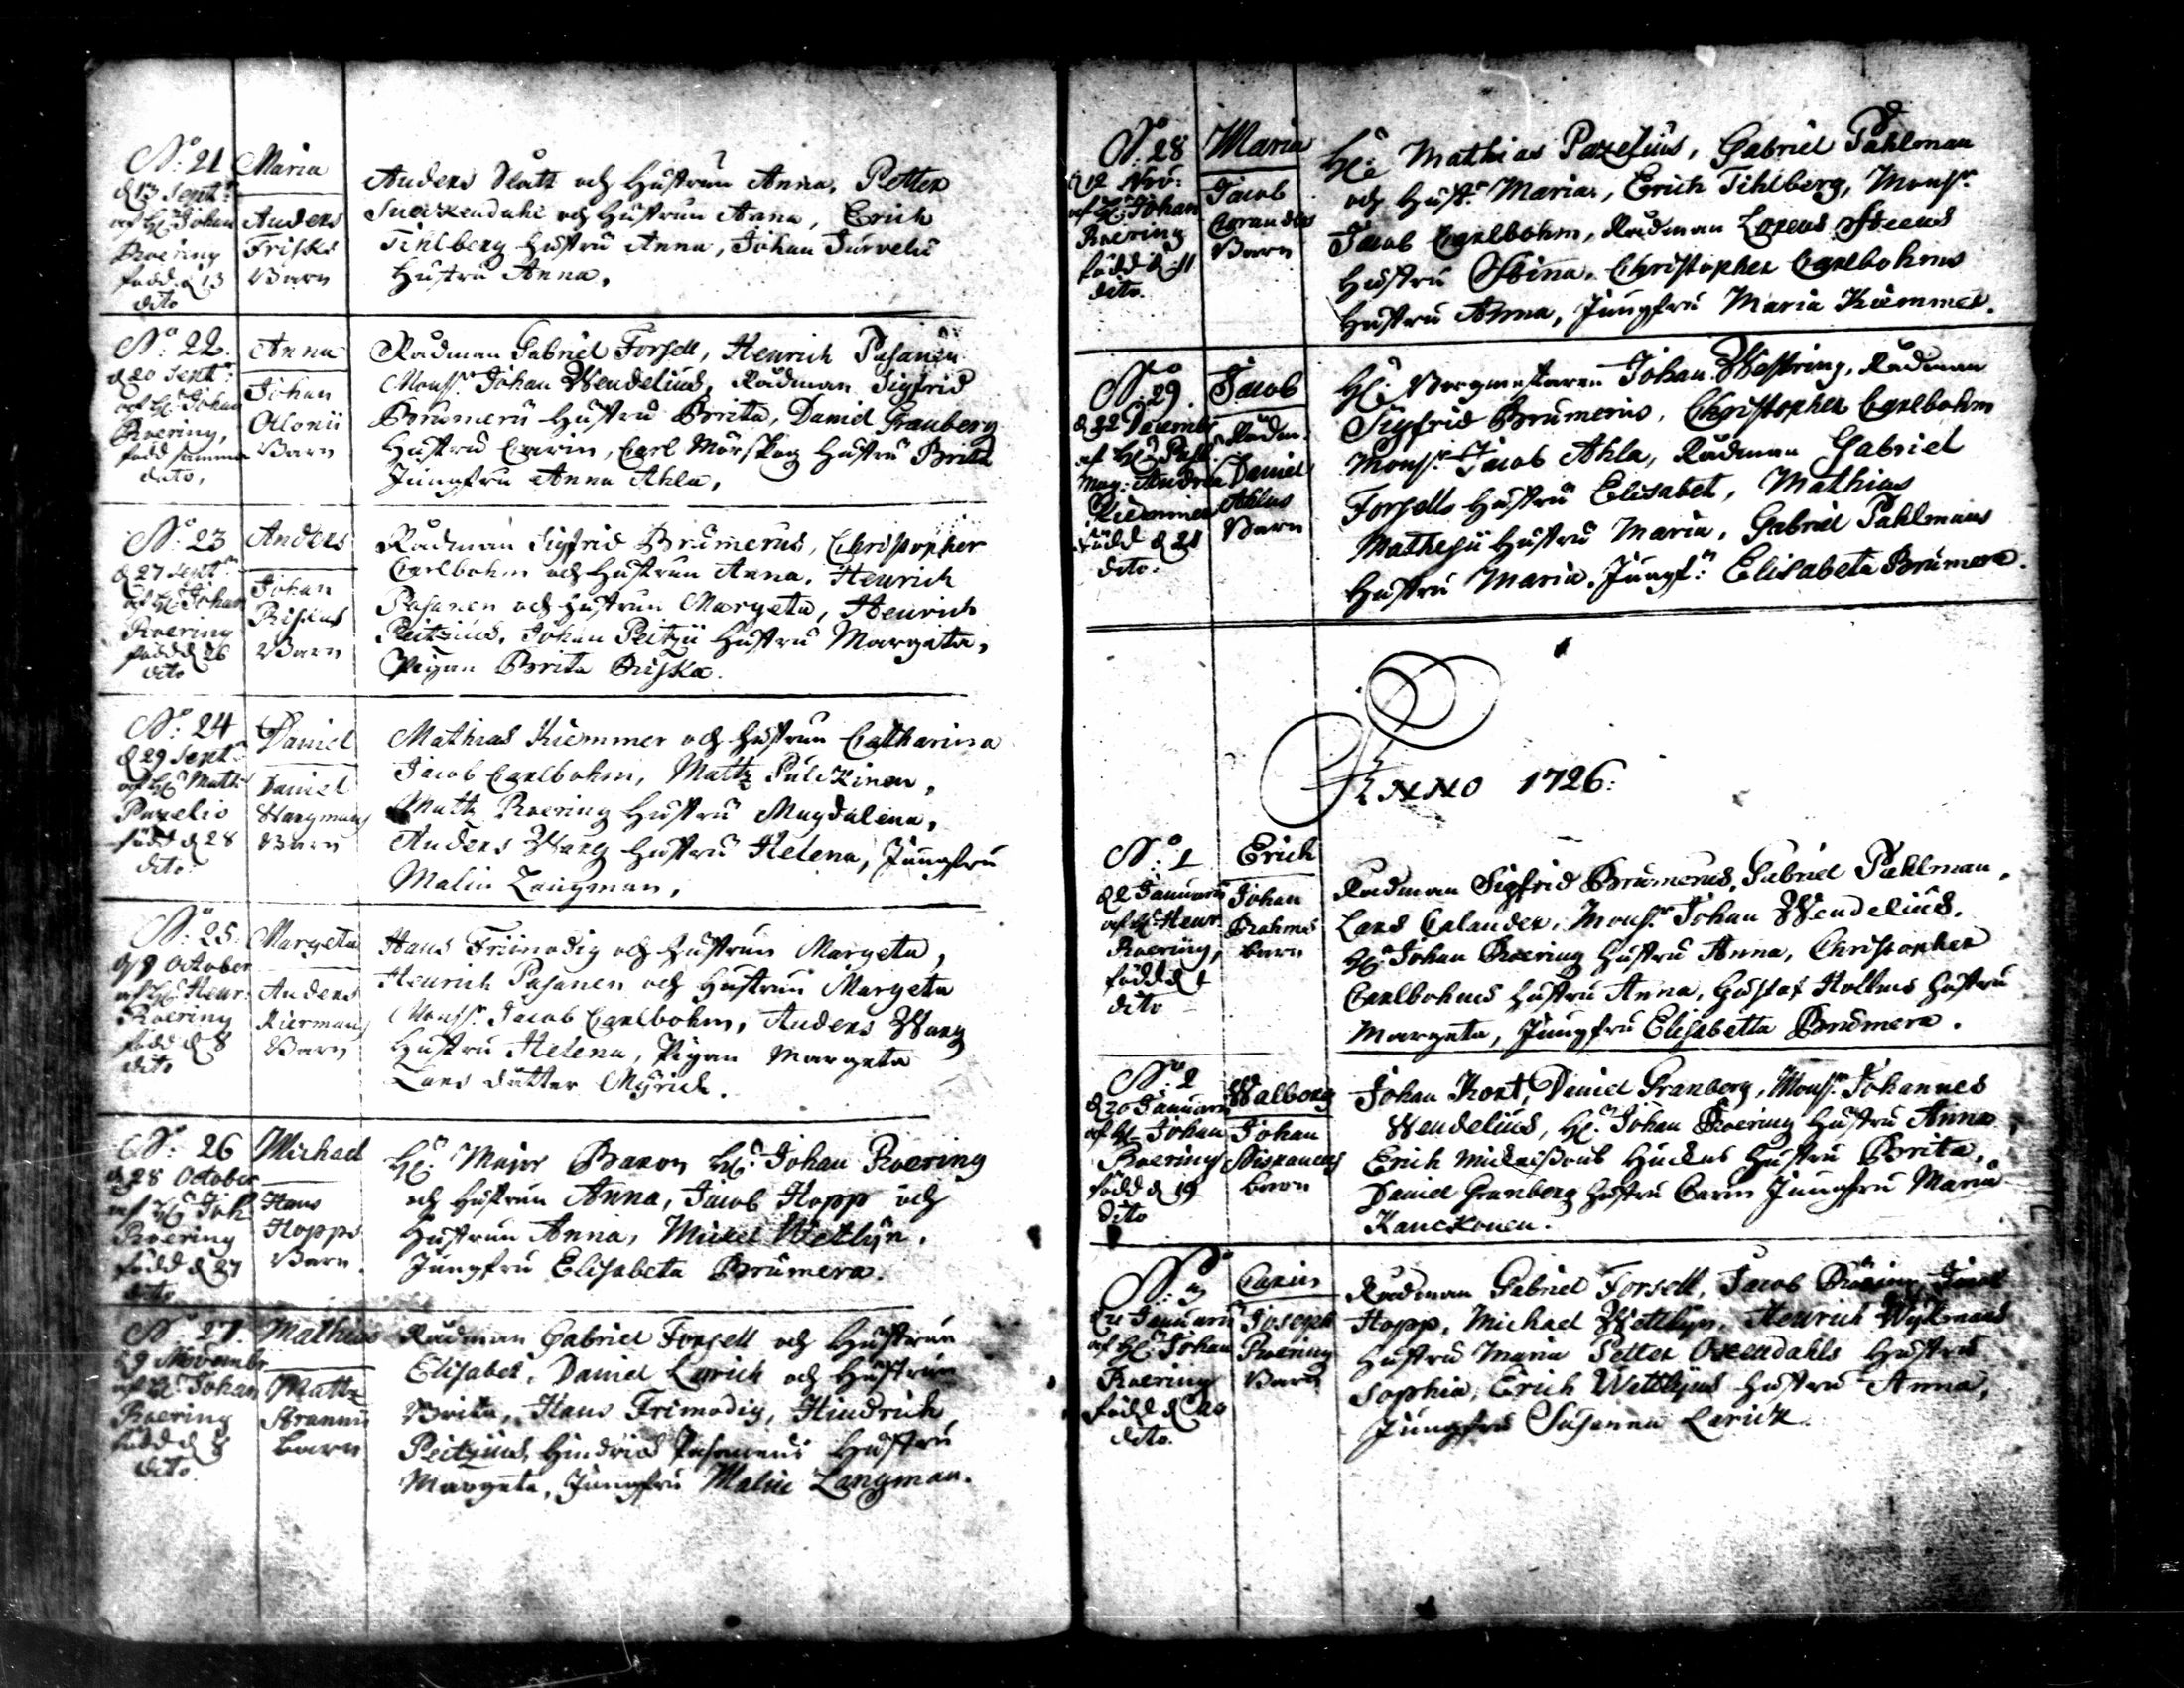 No: 21
d 13 Septr
af Hr Johan
Roering
född d 13
dito
Maria
Anders
Frisks
Barn
Anders Slatz och Hustrun Anna, Petter
Snackendahl och Hustrun Anna, Erich
Tihlberg Hustru Anna, Johan Survelii
Hustru Anna,
No: 22.
d 20 Septr
af Hr Johan
Roering,
född samma
dito,
Anna
Johan
Alonii
Barn
Rådman Gabriel Forsell, Henrich Pasanen
Monsr Johan Wendelius, Rådman Sigfrid
Brumerii Hustru Brita, Daniel Granberg
Hustru Carin, Carl Mörskog Hustru Brita
Jungfru Anna Ahla,
No: 23
d 27 Septr
af Hr Johan
Roering
född d 26
dito
Anders
Johan
Riskas
Barn
Rådman Sigfrid Brumerus, Christopher
Carlbohm och Hustrun Anna, Henrich
Pasanen och Hustrun Margeta, Henrich
Peitzius, Johan Peitzii Hustru Margeta,
Pigan Brita Riska.
No: 24
d 29 Septr
af Hr Math:
Pazelio
född d 28
dito
Daniel
Daniel
Wargmans
Barn
Mathias Kiemmer och Hustrun Catharina
Jacob Carlbohm, Mattz Pulckinen,
Mattz Roering Hustru Magdalena,
Anders Warg Hustru Helena, Jungfru
Malin Langman,
No: 25.
d 9 October
af Hr Henr:
Roering
född d 8
dito
Margeta
Anders
Kiermans
Barn
Hans Frimodig och Hustrun Margeta,
Henrich Pasanen och Hustrun Margeta
Monsr Jacob Carlbohm, Anders Warg
Hustru Helena, Pigan Margeta
Lars dotter Myrick.
No: 26
d 28 October
af Hr Joh
Roering
född d 27
dito
Michael
Hans
Hopps
Barn.
Hr Major Baron Hr Johan Roering
och Hustrun Anna, Jacob Hopp och
Hustrun Anna, Mickel Wetlyn,
Jungfru Elisabeta Brumera.
No: 27.
d 9 Novembr
af Hr Johan
Roering
född d 8
dito.
Mathias
Mattz
Strannii
Barn
Rådman Gabriel Forsell och Hustrun
Elisabet, Daniel Lyrich och Hustrun
Brita, Hans Frimodig, Hindrich
Peitzius, Hindrich Pasanens Hustru
Margeta, Jungfru Malin Langman.
No: 28
d 12 Nov:
af Hr Johan
Roering
född d 11
dito.
Maria
Jacob
Barn
Hr Mathias Pazelius, Gabriel Pahlman
och Hustr: Maria, Erich Tihlberg, Monsr
Jacob Carlbohm, Rådman Lorens
Hustru Stina, Christopher Carlbohms
Hustru Anna, Jungfru Maria Kiemmer.
No: 29.
d 22 Decembr
af Hr Past:
Mag: Andrea
Kiemmer
född d 21
dito.
Jacob
Rådm.
Daniel
Ahlas
Barn
Hr Borgmestaren Johan Westring, Rådman
Sigfrid Brumerus, Christopher Carlbohm
Monsr Jacob Ahla, Rådman Gabriel
Forsells Hustru Elisabet, Mathias
Mathesii Hustru Maria, Gabriel Pahlmans
Hustru Maria, Jungf: Elisabeta Brumera.
ANNO 1726:
No: 1
d 2 Januarii
af Hr Henr
Roering,
född d 1
dito
Erich
Johan
Brahms
barn
Rådman Sigfrid Brumerus, Gabriel Pahlman,
Lars Calander, Monsr Johan Wendelius,
Hr Johan Roering Hustru Anna, Christopher
Carlbohms Hustru Anna, Gustaf Hollms Hustru
Margeta, Jungfru Elisabetta Brumera.
No: 2
d 20 Januarii
af Hr Johan
Roering
född d 19
dito
Walborg
Johan
barn
Johan Kort, Daniel Granberg, Monsr Johannes
Wendelius, Hr Johan Roering Hustru Anna
Erich Mickelssons Huckus Hustru Brita,
Daniel Granberg Hustru Carin Jungfru Maria
Kanckonen.
No: 3
d 21 Januarii
af Hr Johan
Roering
född d 20
dito.
Carin
Joseph
Roering
Barn
Rådman Gabriel Forsell, Jacob Roering, Jacob
Hopp, Michael Wettlyn, Henrich Wijkmans
Hustru Maria Petter Oxendahls Hustru
Sophia, Erich Wettlyns Hustru Anna,
Jungfru Susanna Larick.